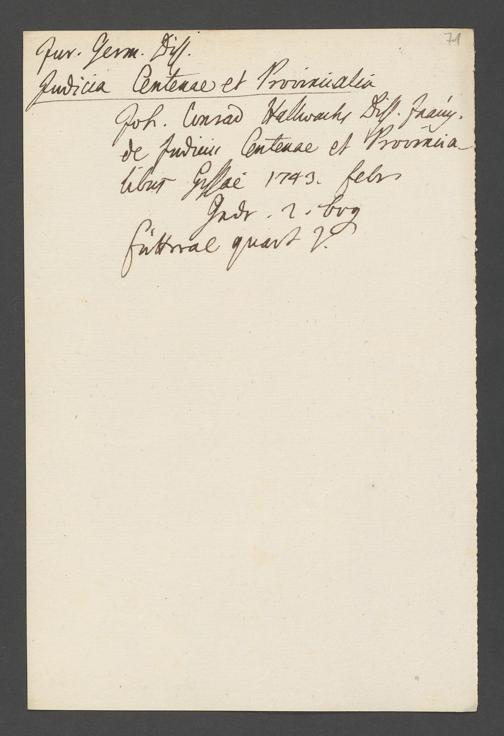 71
Jur. Germ. Diss.
Judicia Centenae et Provincialia
Joh. Conrad Hallwachs Diss. Inaug.
de Judiciis Centenae et Provincia-
libus Gissae 1743. febr.
2. bog
futteral quart 7.